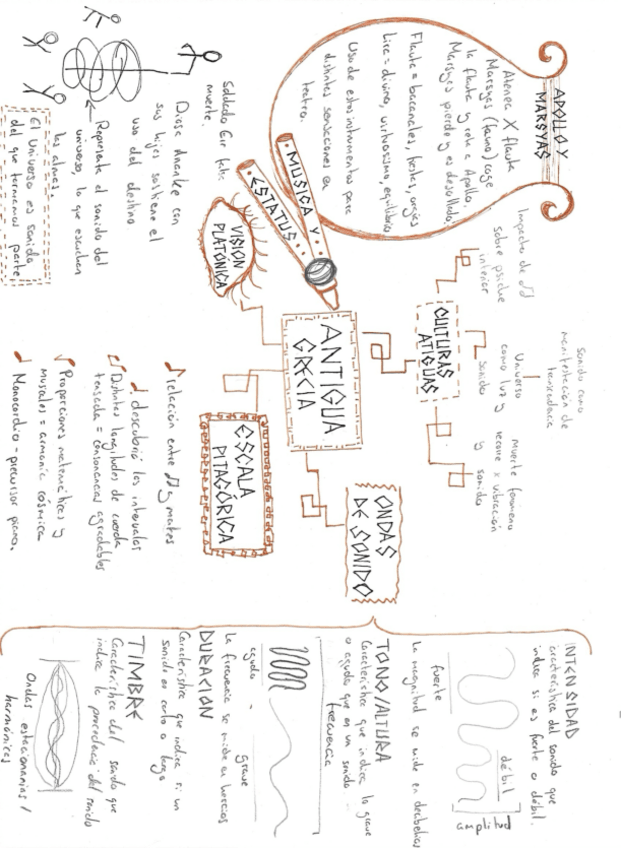 APOLLO Y
MARSYAS
Atenea X flauta
Marsyas (fauno) coge
la flauta y reta a Apollo,
Marsyas pierde y es desollado.
Flauta = bacanales, fiestas, orgías
Lira = divina, virtuosismo, equilibrio
Uso de estos instrumentos para
distintas sensaciones en
teatro.
MUSICA Y
ESTATUS
VISION
PLATÓNICA
Soldado Er
muerte.
Diosa Ananke con
sus hijas sostiene el
uso del destino
Representa el sonido del
universo, lo que escuchan
las almas.
El Universo es sonido
del que formamos parte
ANTIGUA
GRECIA
CULTURAS
ATIGUAS
Impacto de
sobre psique
interior
sonido como
manifestación de
Universo
como luz y
sonido
muerte fenómeno
recone x vibración
y sonido
ESCALA
PITAGÓRICA
relación entre ♫ y mates
descubrió los intervalos
Distintas longitudes de cuerda
tensada = consonancias agradables
Proporciones matemáticas y
musicales = armonía cósmica
Monocordio - precursor piano.
ONDAS
DE SONIDO
INTENSIDAD
característica del sonido que
indica si es fuerte o débil.
fuerte
débil
amplitud
La magnitud se mide en decibelios
TONO/ALTURA
Característica que indica lo grave
o agudo que es un sonido
frecuencia
agudo - grave
La frecuencia se mide en hercios
DURACION
Característica que indica si un
sonido es corto o largo
TIMBRE
Característica del sonido que
indica la procedencia del sonido
Ondas estacionarias /
harmónicas